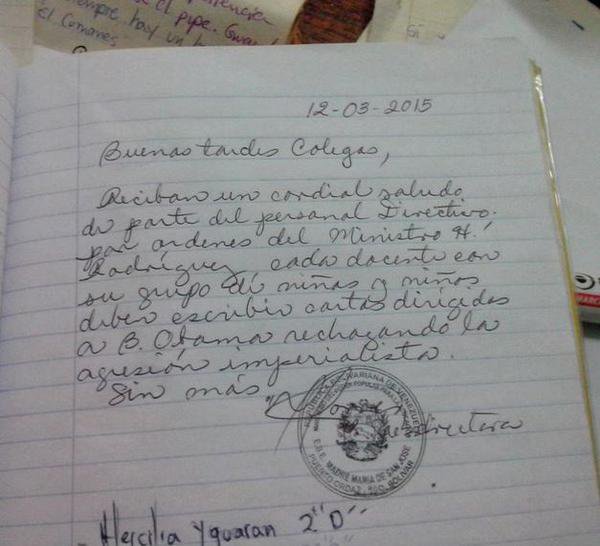 el pipe. Gwen
siempre hay un
el Comanes
12-03-2015
Buenas tardes Colegas,
Reciban un cordial saludo
de parte del personal Directivo.
por ordenes del Ministro H.
Rodríguez, cada docente con
su grupo de niñas y niños
deben escribir cartas dirigidas
a B. Obama rechazando la
agresión imperialista.
Sin más
directora
REPÚBLICA BOLIVARIANA DE VENEZUELA
MADRE MARIA DE SAN JOSE
PUERTO ORDAZ - EDO. BOLIVAR
- Hercilia Yguaran 2"D"